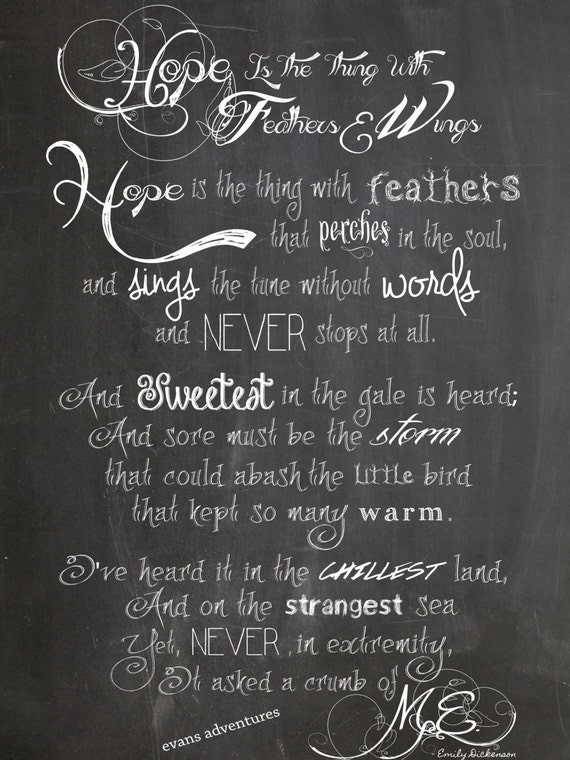 Hope Is The Thing With
Feathers & Wings
Hope is the thing with feathers
that perches in the soul,
and sings the tune without words
and NEVER stops at all.
And Sweetest in the gale is heard;
And sore must be the storm
that could abash the little bird
that kept so many warm.
I've heard it in the CHILLEST land,
And on the strangest sea
Yet, NEVER, in extremity,
It asked a crumb of
ME.
evans adventures
- Emily Dickenson